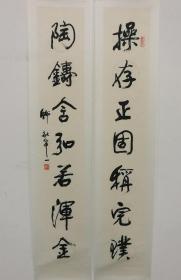 操存正固称完璞
陶鑄含弘若渾金